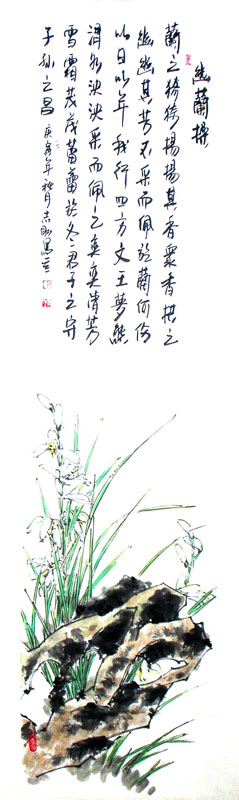 幽蘭操
蘭之猗猗揚揚其香眾香拱之
幽幽其芳不采而佩於蘭何傷
以日以年我行四方文王夢熊
渭水泱泱采而佩之奕奕清芳
雪霜茂茂蕾蕾於冬君子之守
子孙之昌 庚寅年秋月